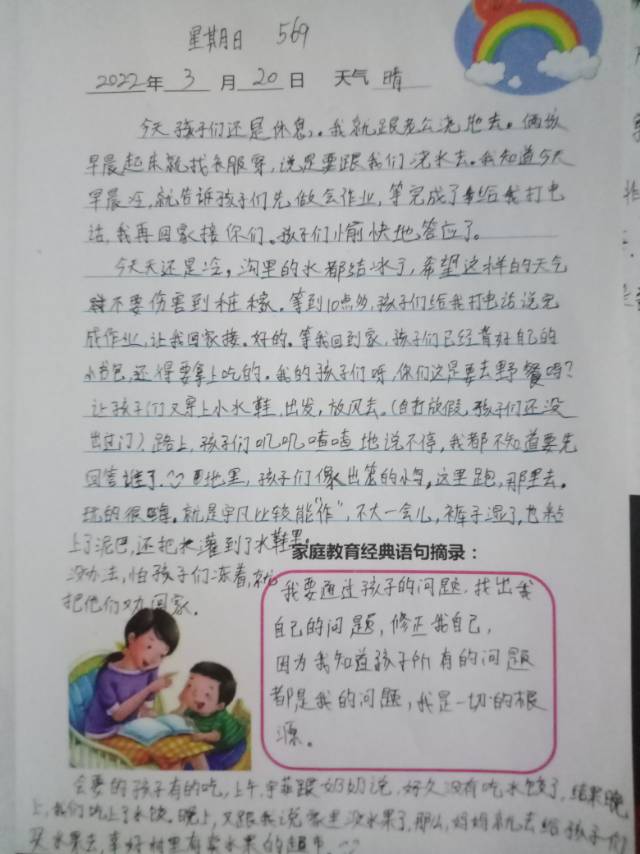 星期日 569
2022年 3 月 20 日 天气 晴
今天孩子们还是休息。我就跟老公浇地去。俩孩
早晨起床就找衣服穿,说是要跟我们浇水去。我知道今天
早晨冷,就告诉孩子们先做会作业,等完成了给我打电
话,我再回家接你们。孩子们愉快地答应了。
今天天还是冷,沟里的水都结冰了,希望这样的天气
不要伤害到桩稼。等到10点多,孩子们给我打电话说完
成作业,让我回家接。好的。等我回到家,孩子们已经背好自己的
小书包,还得要拿上吃的。我的孩子们呀,你们这是要去野餐吗?
让孩子们又穿上小水鞋,出发,放风去。(自打放假,孩子们还没
出过门)路上,孩子们叽叽喳喳地说不停,我都不知道要先
回答谁了。到地里,孩子们像出笼的小鸟,这里跑,那里去。
玩的很嗨。就是宇凡比较能“作”,不大一会儿,裤子湿了,也粘
上了泥巴,还把水灌到了水鞋里。
没办法,怕孩子们冻着,就
把他们劝回家。
家庭教育经典语句摘录:
我要通过孩子的问题,找出我
自己的问题,修正我自己,
因为我知道孩子所有的问题
都是我的问题,我是一切的根
源。
会要的孩子有的吃,上午,宇菲跟奶奶说,好久没有吃水饺了,结果晚
上,我们吃上了水饺。晚上,又跟我说家里没水果了,那么,妈妈就去给孩子们
买水果去,幸好村里有卖水果的超市。